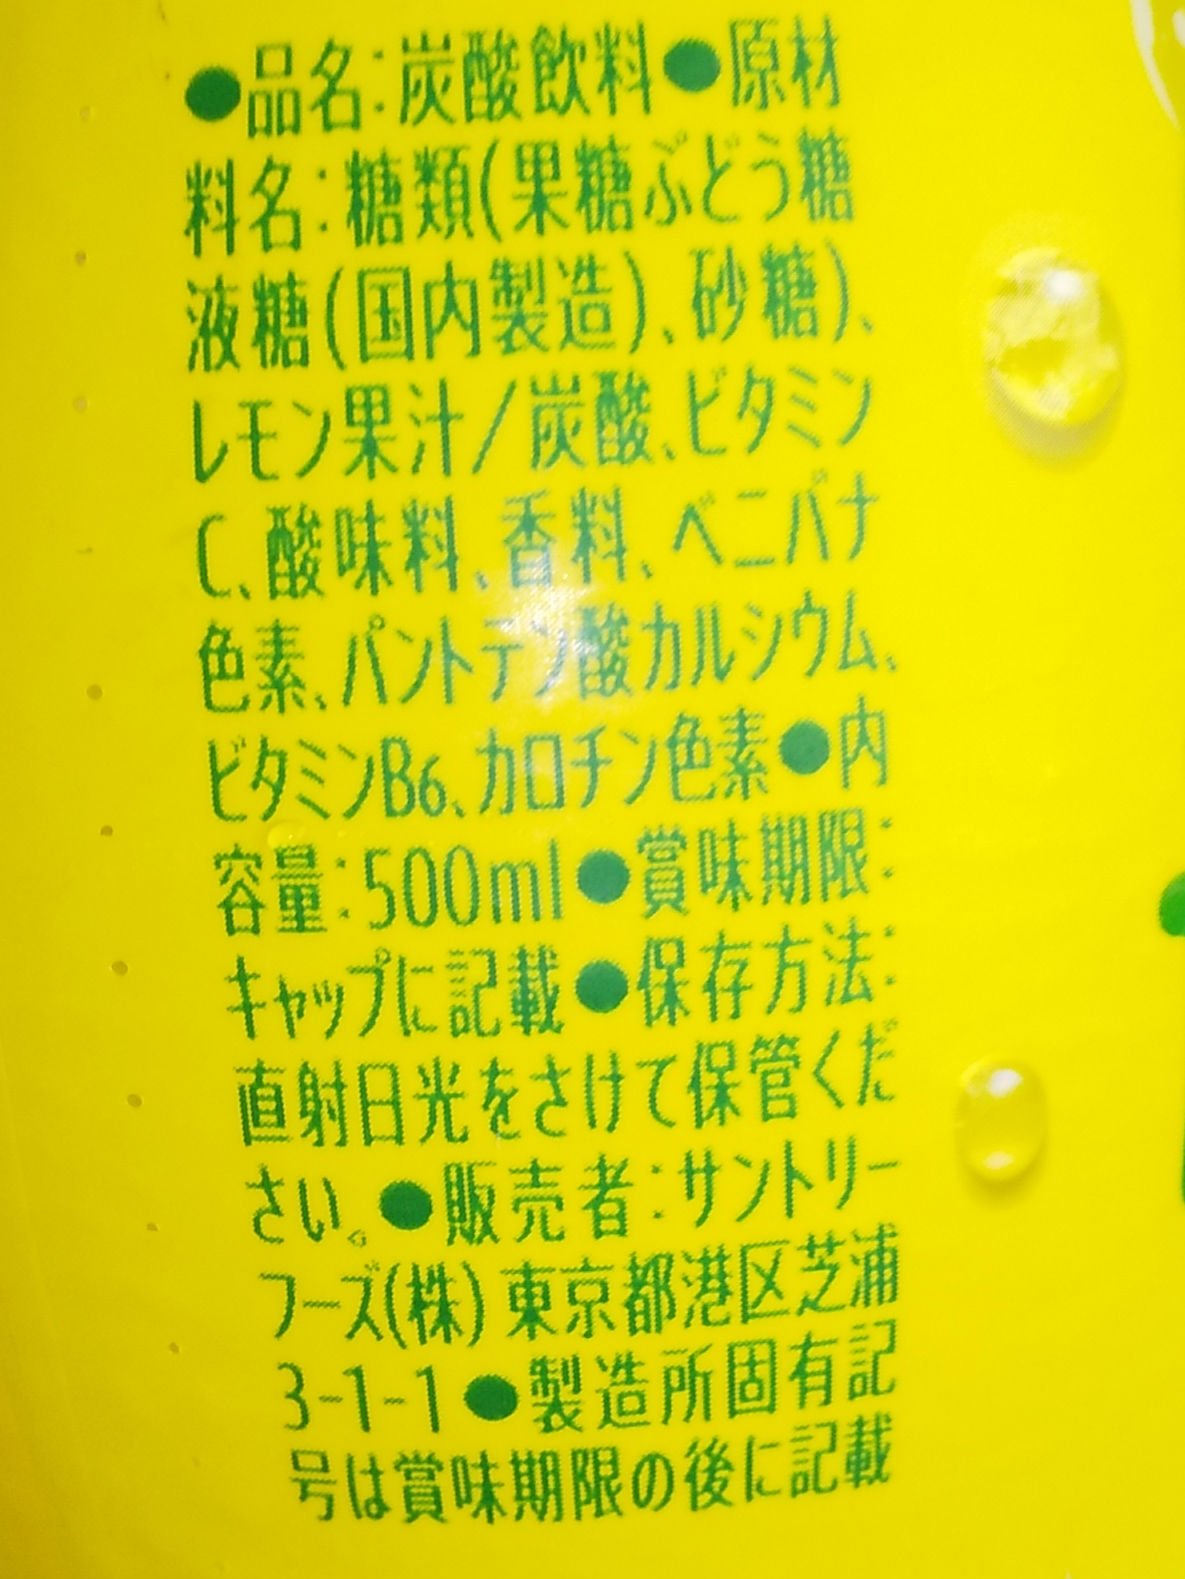 ●品名:炭酸飲料●原材
料名:糖類(果糖ぶどう糖
液糖(国内製造)、砂糖)、
レモン果汁/炭酸、ビタミン
C、酸味料、香料、ベニバナ
色素、パントテン酸カルシウム、
ビタミンB6、カロチン色素●内
容量:500ml●賞味期限:
キャップに記載●保存方法:
直射日光をさけて保管くだ
さい。●販売者:サントリー
フーズ(株)東京都港区芝浦
3-1-1●製造所固有記
号は賞味期限の後に記載